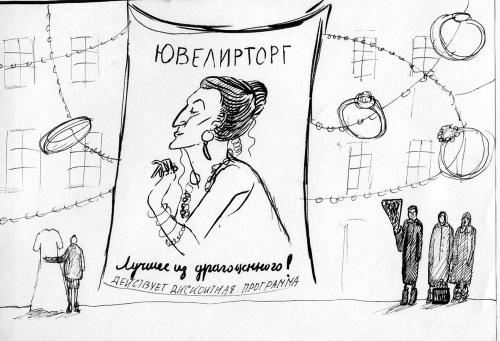 ЮВЕЛИРТОРГ
Лучшее из драгоценного!
ДЕЙСТВУЕТ ДИСКОНТНАЯ ПРОГРАММА